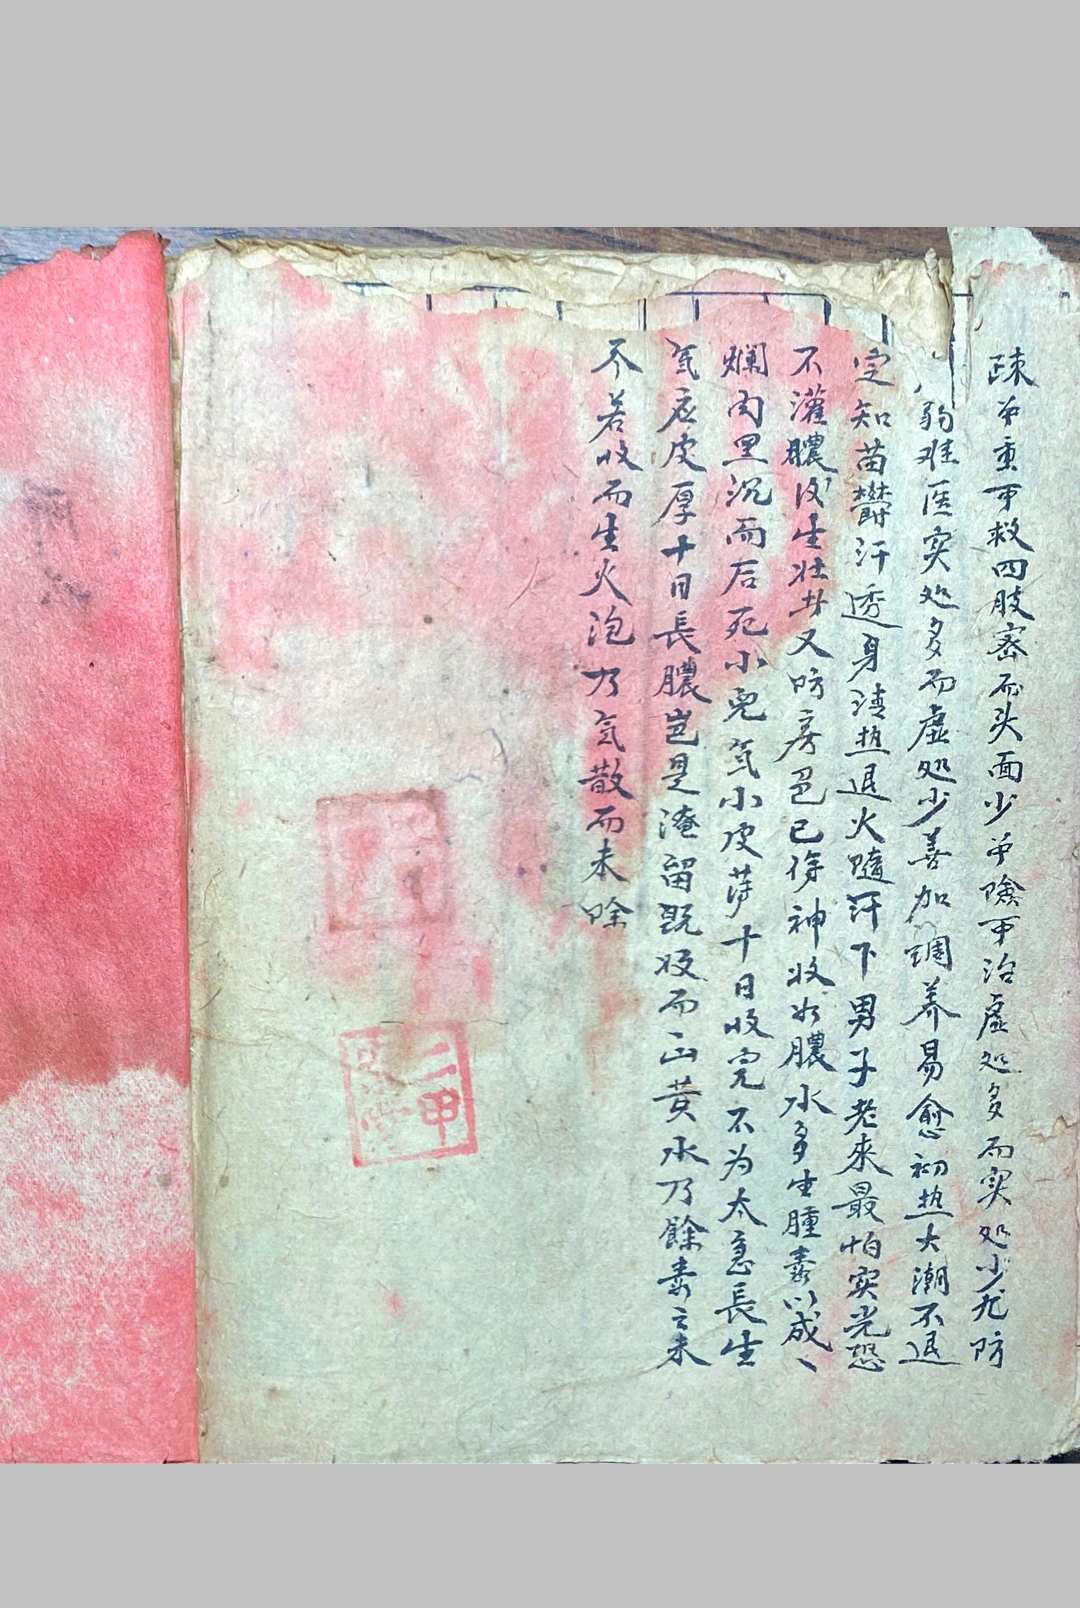 疎虽重可救四肢密而头面少虽險可治虚処多而实処少尤防
弱难医实処多而虚処少善加调养易愈初热大潮不退
定知苗欝汗透身清热退火隨汗下男子老來最怕实光恐
不灌膿後生壮力又防房色已停神收水膿水多生腫毒以成丶
爛肉黑沉而后死小兒氣小皮薄十日收完不为太急長生
氣旺皮厚十日長膿岂是淹留既收而出黄水乃餘毒之未
不若收而生火泡乃氣散而未除
二甲